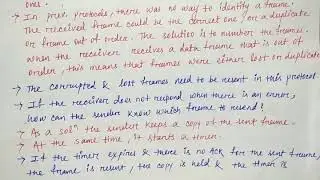 ones.
→ In prev. protocols, there was no way to identify a frame.
The received frame could be the correct one, or a duplicate
or frame out of order. The solution is to number the frames.
When the receiver receives a data frame that is out of
order, this means that frames were either lost or duplicated
→ The corrupted & lost frames need to be resent in this protocol
→ If the receiver does not respond when there is an error,
how can the sender know which frame to resend?
→ As a solⁿ the sender keeps a copy of the sent frame.
→ At the same time, it starts a timer.
→ If the timer expires & there is no ACK for the sent frame,
the frame is resent, the copy is held & the timer is